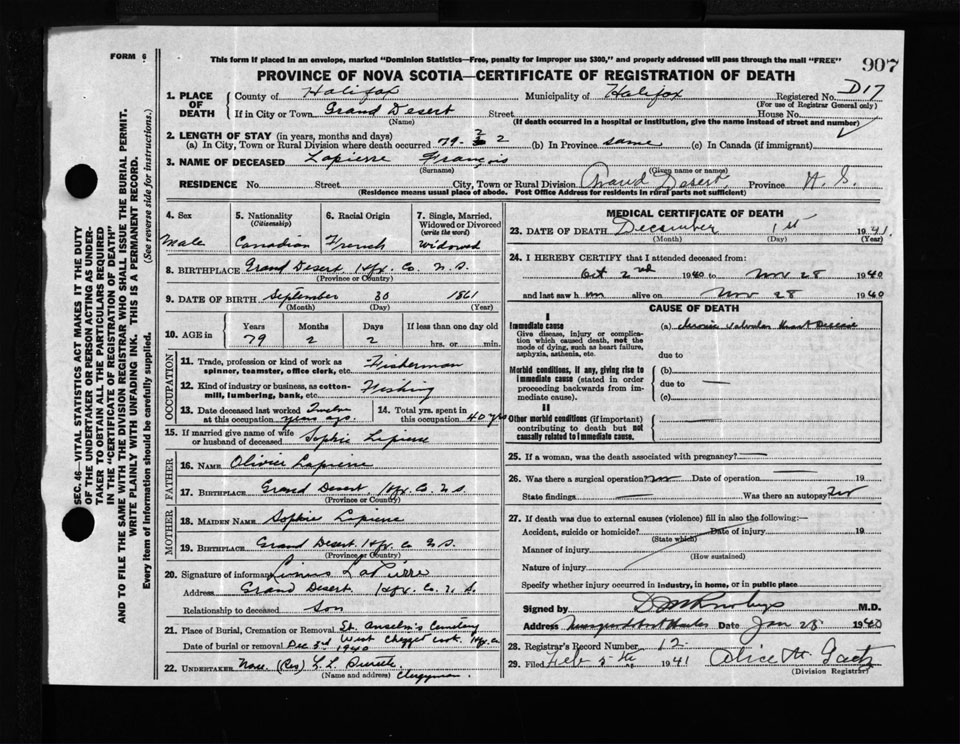 FORM 6
This form if placed in an envelope, marked "Dominion Statistics—Free, penalty for improper use $300," and properly addressed will pass through the mail "FREE"
907
PROVINCE OF NOVA SCOTIA—CERTIFICATE OF REGISTRATION OF DEATH
SEC. 46—VITAL STATISTICS ACT MAKES IT THE DUTY
OF THE UNDERTAKER OR PERSON ACTING AS UNDER-
TAKER TO OBTAIN ALL THE PARTICULARS REQUIRED
IN THE "CERTIFICATE OF REGISTRATION OF DEATH"
AND TO FILE THE SAME WITH THE DIVISION REGISTRAR WHO SHALL ISSUE THE BURIAL PERMIT.
WRITE PLAINLY WITH UNFADING INK. THIS IS A PERMANENT RECORD.
Every item of information should be carefully supplied. (See reverse side for instructions.)
1. PLACE OF DEATH County of Halifax Municipality of Halifax Registered No. D17
(For use of Registrar General only)
If in City or Town Grand Desert Street House No.
(Name) (If death occurred in a hospital or institution, give the name instead of street and number)
2. LENGTH OF STAY (in years, months and days)
(a) In City, Town or Rural Division where death occurred 79- 2 2 (b) In Province same (c) In Canada (if immigrant)
3. NAME OF DECEASED Lapierre François
(Surname) (Given name or names)
RESIDENCE No. Street City, Town or Rural Division Grand Desert Province N. S.
(Residence means usual place of abode. Post Office Address for residents in rural parts not sufficient)
4. Sex
Male
5. Nationality
(Citizenship)
Canadian
6. Racial Origin
French
7. Single, Married, Widowed or Divorced
(write the word)
Widowed
8. BIRTHPLACE Grand Desert Hfx. Co. N.S.
(Province or Country)
9. DATE OF BIRTH September 30 1861
(Month) (Day) (Year)
10. AGE in Years Months Days If less than one day old
79 2 2 hrs. or min.
OCCUPATION
11. Trade, profession or kind of work as spinner, teamster, office clerk, etc. Fisherman
12. Kind of industry or business, as cotton-mill, lumbering, bank, etc. Fishing
13. Date deceased last worked at this occupation Twelve years ago.
14. Total yrs. spent in this occupation 40 yrs
15. If married give name of wife or husband of deceased Sophie Lapierre
FATHER
16. NAME Olivier Lapierre
17. BIRTHPLACE Grand Desert, Hfx. Co. N.S.
(Province or Country)
MOTHER
18. MAIDEN NAME Sophie Lapierre
19. BIRTHPLACE Grand Desert, Hfx. Co N.S.
(Province or Country)
20. Signature of informant LaPierre
Address Grand Desert Hfx. Co. N. S.
Relationship to deceased Son
21. Place of Burial, Cremation or Removal St. Anselm's Cemetery
West Chezzetcook. Hfx. Co
Date of burial or removal Dec. 3rd 1940
22. UNDERTAKER None. (Rev) L L
(Name and address) Clergyman.
MEDICAL CERTIFICATE OF DEATH
23. DATE OF DEATH December 1st 1941.
(Month) (Day) (Year)
24. I HEREBY CERTIFY that I attended deceased from:
Oct 2nd 1940 to Nov 28 1940
and last saw him alive on Nov 28 1940
CAUSE OF DEATH
I
Immediate cause
Give disease, injury or complication which caused death, not the mode of dying, such as heart failure, asphyxia, asthenia, etc.
(a) chronic valvular Heart Disease
due to
Morbid conditions, if any, giving rise to immediate cause (stated in order proceeding backwards from immediate cause).
(b)
due to —
(c)
II
Other morbid conditions (if important) contributing to death but not causally related to immediate cause.
25. If a woman, was the death associated with pregnancy? —
26. Was there a surgical operation? no Date of operation — 19
State findings — Was there an autopsy? no
27. If death was due to external causes (violence) fill in also the following:—
Accident, suicide or homicide? Date of injury 19
(State which)
Manner of injury
(How sustained)
Nature of injury
Specify whether injury occurred in industry, in home, or in public place
Signed by M.D.
Address Musquodoboit Harbor Date Jan 28 1940
28. Registrar's Record Number 12
29. Filed Feb 5th 1941 Alice M. Gaetz
(Division Registrar)